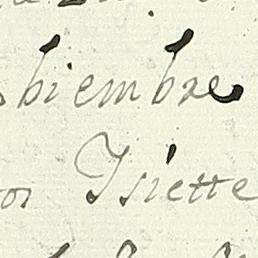 biembre
or Ysiette